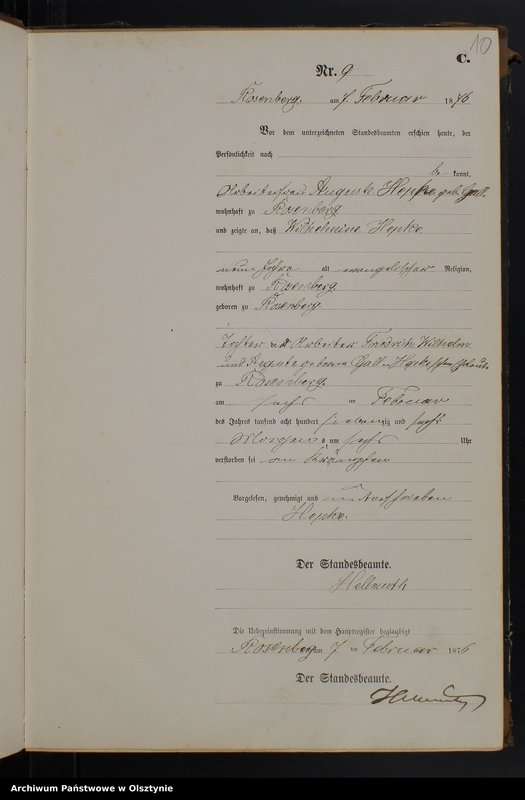 10
C.
Nr. 9
Rosenberg, am 7. Februar 1876
Vor dem unterzeichneten Standesbeamten erschien heute, der
Persönlichkeit nach
be kannt,
Arbeiterfrau Auguste Hopke geb. Gall.
wohnhaft zu Rosenberg
und zeigte an, daß Wilhelmine Hopke
neun Jahre alt evangelischer Religion,
wohnhaft zu Rosenberg
geboren zu Rosenberg
Tochter des Arbeiter Friedrich Wilhelm
und Auguste geborene Gall Hopkeschen Eheleute
zu Rosenberg
am sechs ten Februar
des Jahres tausend acht hundert siebenzig und sechs
Morgens um sechs Uhr
verstorben sei an Krämpfen
Vorgelesen, genehmigt und unterschrieben
Hopke.
Der Standesbeamte.
Hellmuth
Die Uebereinstimmung mit dem Hauptregister beglaubigt
Rosenberg am 7 ten Februar 1876
Der Standesbeamte.
Archiwum Państwowe w Olsztynie